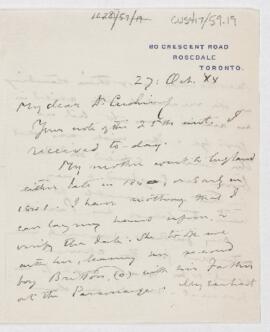 CUS/17/59.19
80 CRESCENT ROAD
ROSEDALE
TORONTO.
27: Oct. XX
My dear Dr
Your note of the 25th inst. I
received to day.
My mother went to England
either late in 1840, or early in
1841. I have nothing that I
can lay my hand upon, to
verify the date. She took me
with her, leaving her second
boy Britton (O) with her Father
at the Parsonage. My earliest